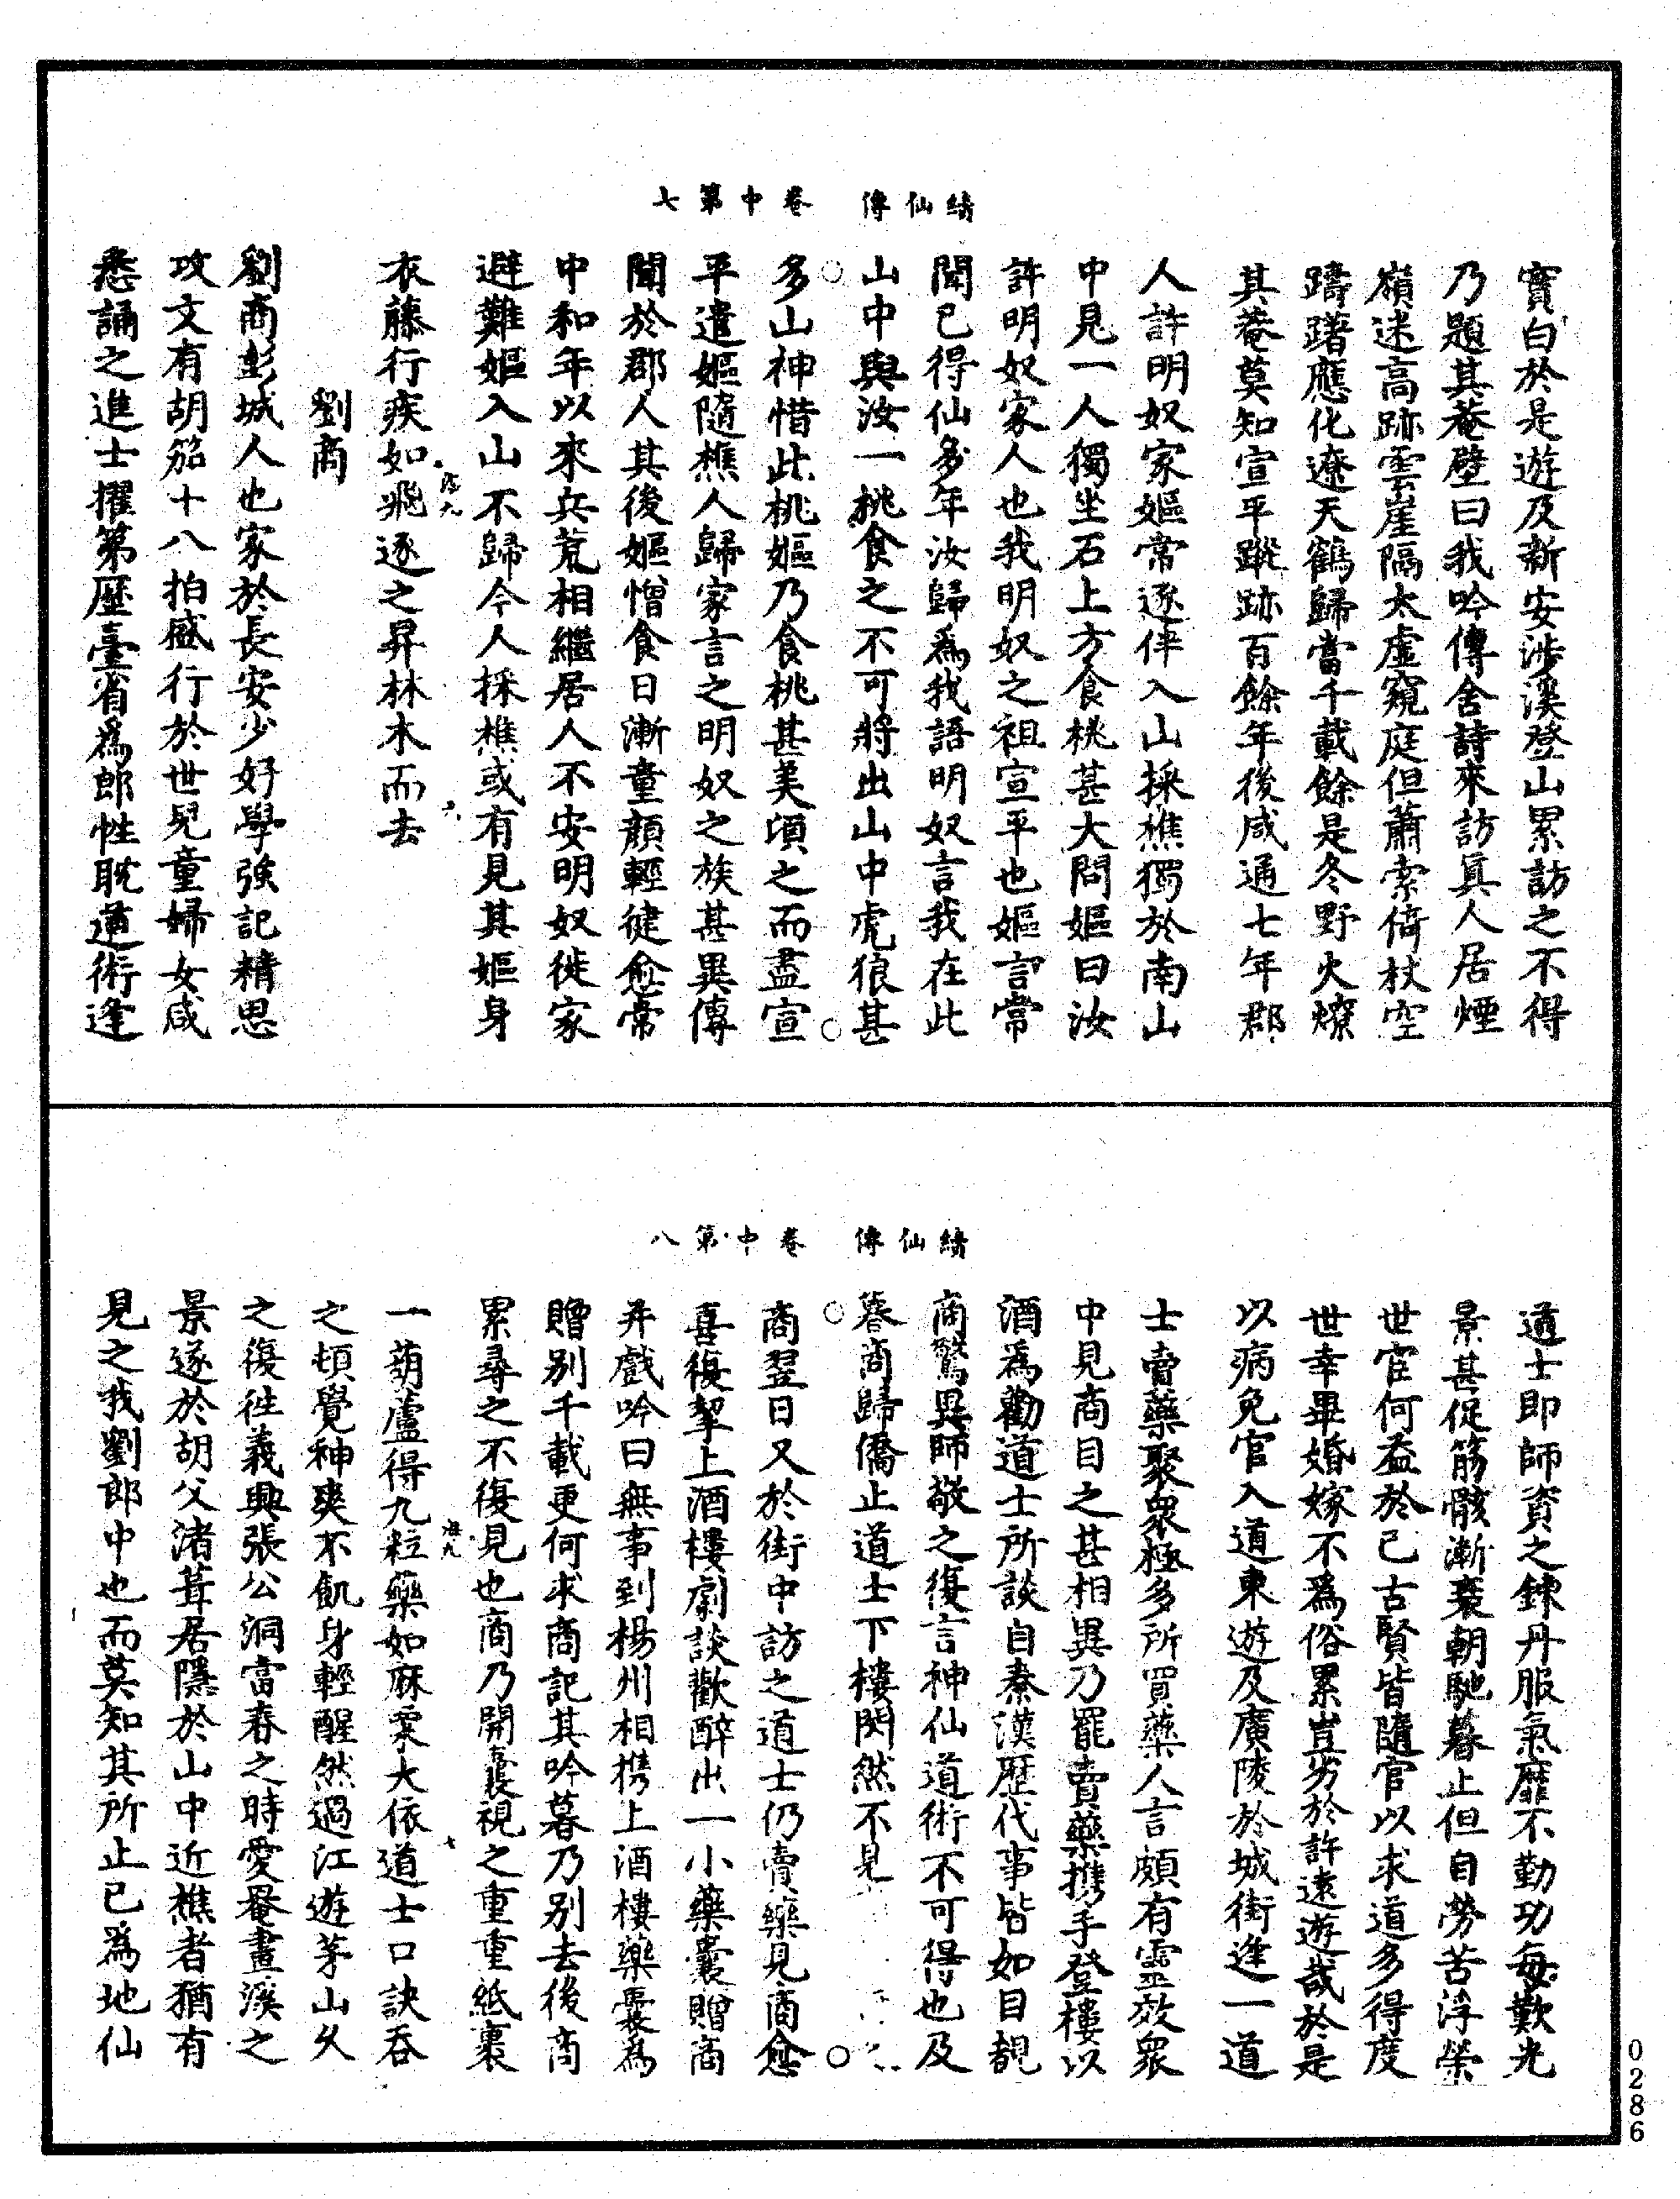 續仙傳　卷中第七
實白於是遊及新安涉溪登山累訪之不得
乃題其菴壁曰我吟傳舍詩來訪眞人居煙
嶺迷高跡雲崖隔太虛窺庭但蕭索倚杖空
躊躇應化遼天鶴歸當千載餘是冬野火燎
其菴莫知宣平蹤跡百餘年後咸通七年郡
人許明奴家嫗常逐伴入山採樵獨於南山
中見一人獨坐石上方食桃甚大問嫗曰汝
許明奴家人也我明奴之祖宣平也嫗言常
聞已得仙多年汝歸爲我語明奴言我在此
山中與汝一桃食之不可將出山中虎狼甚
多山神惜此桃嫗乃食桃甚美頃之而盡宣
平遣嫗隨樵人歸家言之明奴之族甚異傳
聞於郡人其後嫗憎食日漸童顏輕健愈常
中和年以來兵荒相繼居人不安明奴徙家
避難嫗入山不歸今人採樵或有見其嫗身
衣藤行疾如飛逐之昇林木而去
劉商
劉商彭城人也家於長安少好學強記精思
攻文有胡笳十八拍盛行於世兒童婦女咸
悉誦之進士擢第歷臺省爲郎性耽道術逢
續仙傳　卷中第八
道士即師資之鍊丹服氣靡不勤功每歎光
景甚促筋骸漸衰朝馳暮止但自勞苦浮榮
世宦何益於己古賢皆隨官以求道多得度
世幸畢婚嫁不爲俗累豈劣於許遠遊哉於是
以病免官入道東遊及廣陵於城街逢一道
士賣藥聚衆極多所買藥人言頗有靈效衆
中見商目之甚相異乃罷賣藥携手登樓以
酒爲勸道士所談自秦漢歷代事皆如目覩
商驚異師敬之復言神仙道術不可得也及
暮商歸僑止道士下樓閃然不見
商翌日又於街中訪之道士仍賣藥見商愈
喜復挈上酒樓劇談歡醉出一小藥囊贈商
并戲吟曰無事到楊州相携上酒樓藥囊爲
贈別千載更何求商記其吟暮乃別去後商
累尋之不復見也商乃開囊視之重重紙裹
一葫蘆得九粒藥如麻粟大依道士口訣吞
之頓覺神爽不飢身輕醒然過江遊茅山久
之復往義興張公洞當春之時愛罨畫溪之
景遂於胡父渚葺居隱於山中近樵者猶有
見之我劉郎中也而莫知其所止已爲地仙
0286